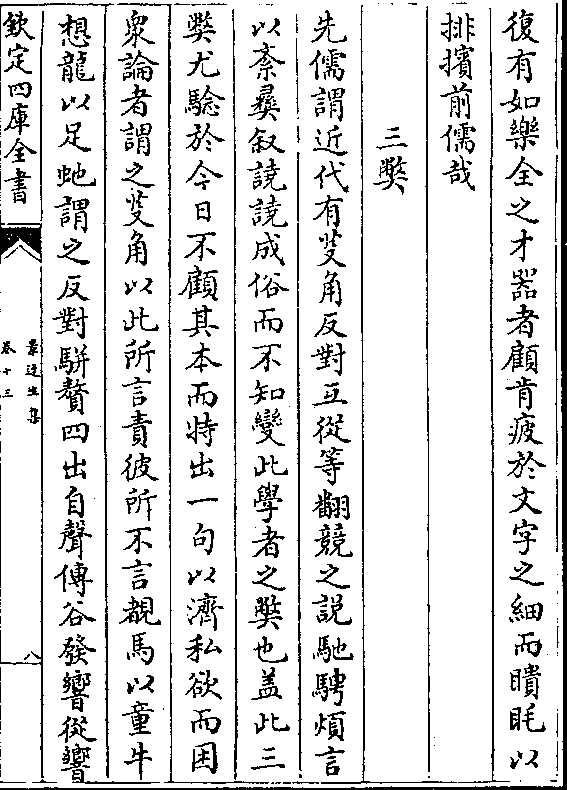 復有如樂全之才器者顧肯疲於文字之細而瞶眊以
排擯前儒哉
三獘
先儒謂近代有䇓角反對互從等翻競之説馳騁煩言
以紊彛叙譊譊成俗而不知變此學者之獘也盖此三
獘尤驗於今日不顧其本而特出一句以濟私欲而困
衆論者謂之䇓角以此所言責彼所不言覩馬以童牛
想龍以足虵謂之反對駢贅四出自聲傳谷發響從響
欽定四庫全書
景迂生集
卷十三
八